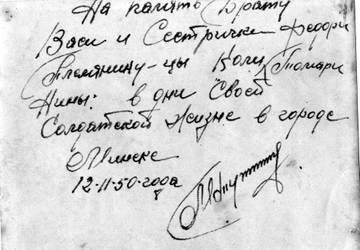 На память Брату
Васи и Сестрички Федори
Племянину-цы Коли, Томари
Нины: в дни Своей
Солдатской жизне в городе
Минске
12-11-50-года